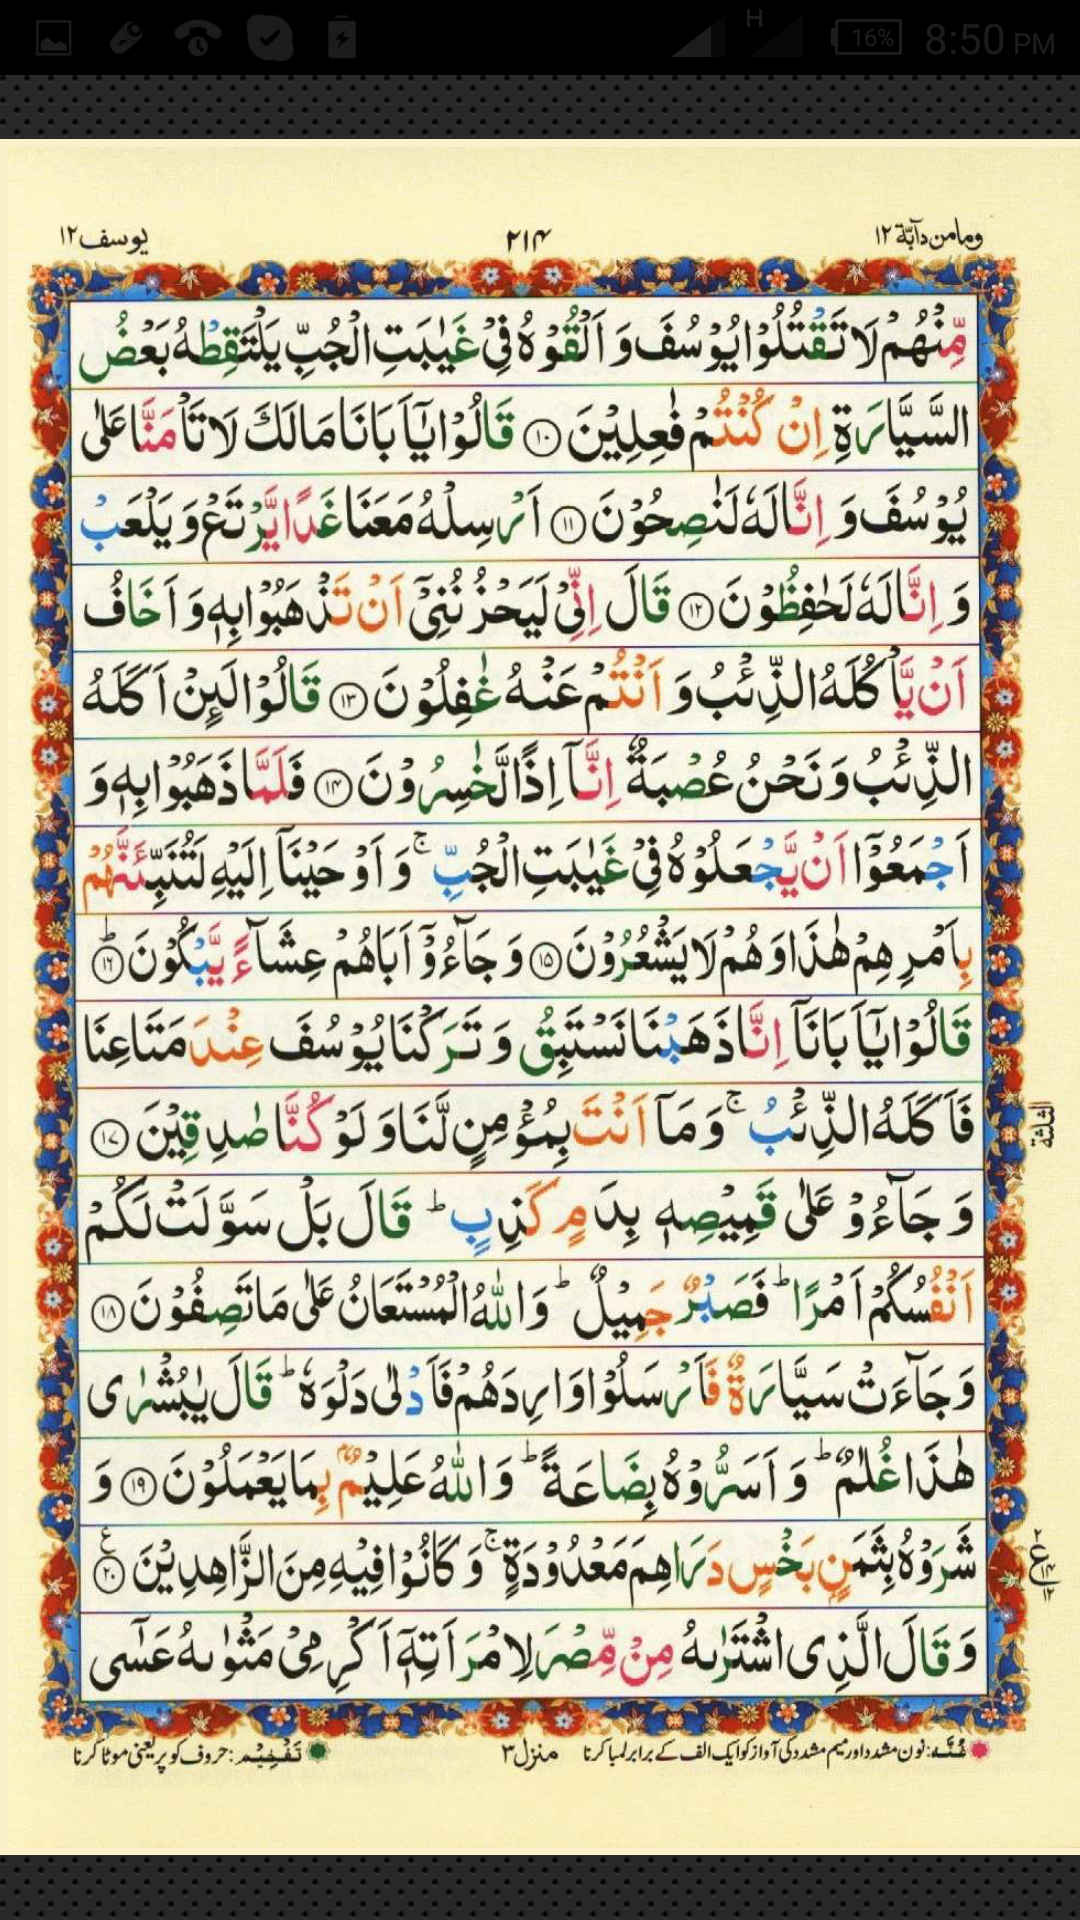 H 16% 8:50 PM
ومامن دآبّة ١٢ ٢١٤ يوسف ١٢
مِّنْهُمْ لَا تَقْتُلُوْا يُوْسُفَ وَ اَلْقُوْهُ فِیْ غَیٰبَتِ الْجُبِّ یَلْتَقِطْهُ بَعْضُ
السَّیَّارَةِ اِنْ كُنْتُمْ فٰعِلِیْنَ ۝۱۰ قَالُوْا یٰۤاَبَانَا مَا لَكَ لَا تَاْمَنَّا عَلٰی
یُوْسُفَ وَ اِنَّا لَهٗ لَنٰصِحُوْنَ ۝۱۱ اَرْسِلْهُ مَعَنَا غَدًا یَّرْتَعْ وَ یَلْعَبْ
وَ اِنَّا لَهٗ لَحٰفِظُوْنَ ۝۱۲ قَالَ اِنِّیْ لَیَحْزُنُنِیْۤ اَنْ تَذْهَبُوْا بِهٖ وَ اَخَافُ
اَنْ یَّاْكُلَهُ الذِّئْبُ وَ اَنْتُمْ عَنْهُ غٰفِلُوْنَ ۝۱۳ قَالُوْا لَىِٕنْ اَكَلَهُ
الذِّئْبُ وَ نَحْنُ عُصْبَةٌ اِنَّاۤ اِذًا لَّخٰسِرُوْنَ ۝۱۴ فَلَمَّا ذَهَبُوْا بِهٖ وَ
اَجْمَعُوْۤا اَنْ یَّجْعَلُوْهُ فِیْ غَیٰبَتِ الْجُبِّ ۚ وَ اَوْحَیْنَاۤ اِلَیْهِ لَتُنَبِّئَنَّهُمْ
بِاَمْرِهِمْ هٰذَا وَ هُمْ لَا یَشْعُرُوْنَ ۝۱۵ وَ جَآءُوْۤ اَبَاهُمْ عِشَآءً یَّبْكُوْنَ ؕ۝۱۶
قَالُوْا یٰۤاَبَانَاۤ اِنَّا ذَهَبْنَا نَسْتَبِقُ وَ تَرَكْنَا یُوْسُفَ عِنْدَ مَتَاعِنَا
فَاَكَلَهُ الذِّئْبُ ۚ وَ مَاۤ اَنْتَ بِمُؤْمِنٍ لَّنَا وَ لَوْ كُنَّا صٰدِقِیْنَ ۝۱۷
الثلثة
وَ جَآءُوْ عَلٰی قَمِیْصِهٖ بِدَمٍ كَذِبٍ ؕ قَالَ بَلْ سَوَّلَتْ لَكُمْ
اَنْفُسُكُمْ اَمْرًا ؕ فَصَبْرٌ جَمِیْلٌ ؕ وَ اللّٰهُ الْمُسْتَعَانُ عَلٰی مَا تَصِفُوْنَ ۝۱۸
وَ جَآءَتْ سَیَّارَةٌ فَاَرْسَلُوْا وَارِدَهُمْ فَاَدْلٰی دَلْوَهٗ ؕ قَالَ یٰبُشْرٰی
هٰذَا غُلٰمٌ ؕ وَ اَسَرُّوْهُ بِضَاعَةً ؕ وَ اللّٰهُ عَلِیْمٌۢ بِمَا یَعْمَلُوْنَ ۝۱۹ وَ
شَرَوْهُ بِثَمَنٍ بَخْسٍ دَرَاهِمَ مَعْدُوْدَةٍ ۚ وَ كَانُوْا فِیْهِ مِنَ الزَّاهِدِیْنَ ۝۲۰
۲ ع ۱۴ ۱۲
وَ قَالَ الَّذِی اشْتَرٰىهُ مِنْ مِّصْرَ لِامْرَاَتِهٖۤ اَكْرِمِیْ مَثْوٰىهُ عَسٰۤی
غُنَّه: نون مشدد اور میم مشدد کی آواز کو ایک الف کے برابر لمبا کرنا منزل ٣ تَفْخِیْم: حروف کو پر یعنی موٹا کرنا